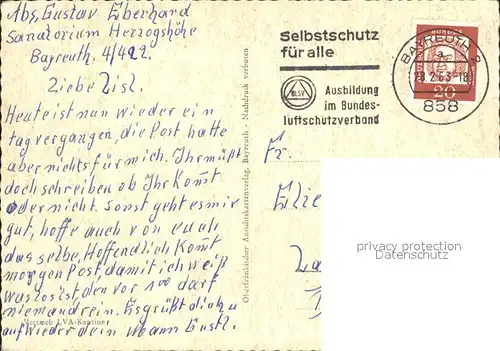 Abs, Gustav Eberhard
Sanatorium Herzogshöhe
Bayreuth. 4/422.
Liebe Lisl.
Heute ist nun wieder ein
tag vergangen, die Post hatte
aber nichts für mich. Ihr müßt
doch schreiben ob Ihr Komt
oder nicht. Sonst geht es mir
gut, hoffe auch von euch
das selbe, Hoffendlich Komt
morgen Post, damit ich weiß
was los ist, den vor 100 darf
niemand rein. Es grüßt dich
auf wieder dein Mann Gustl.
Vertrieb LVA-Kantine
Oberfränkischer Ansichtskartenverlag, Bayreuth - Nachdruck verboten
Selbstschutz
für alle
BLSV
Ausbildung
im Bundes-
luftschutzverband
BAYREUTH 2
a
28.2.63-18
858
20
Fr.
Elie
La
privacy protection
Datenschutz